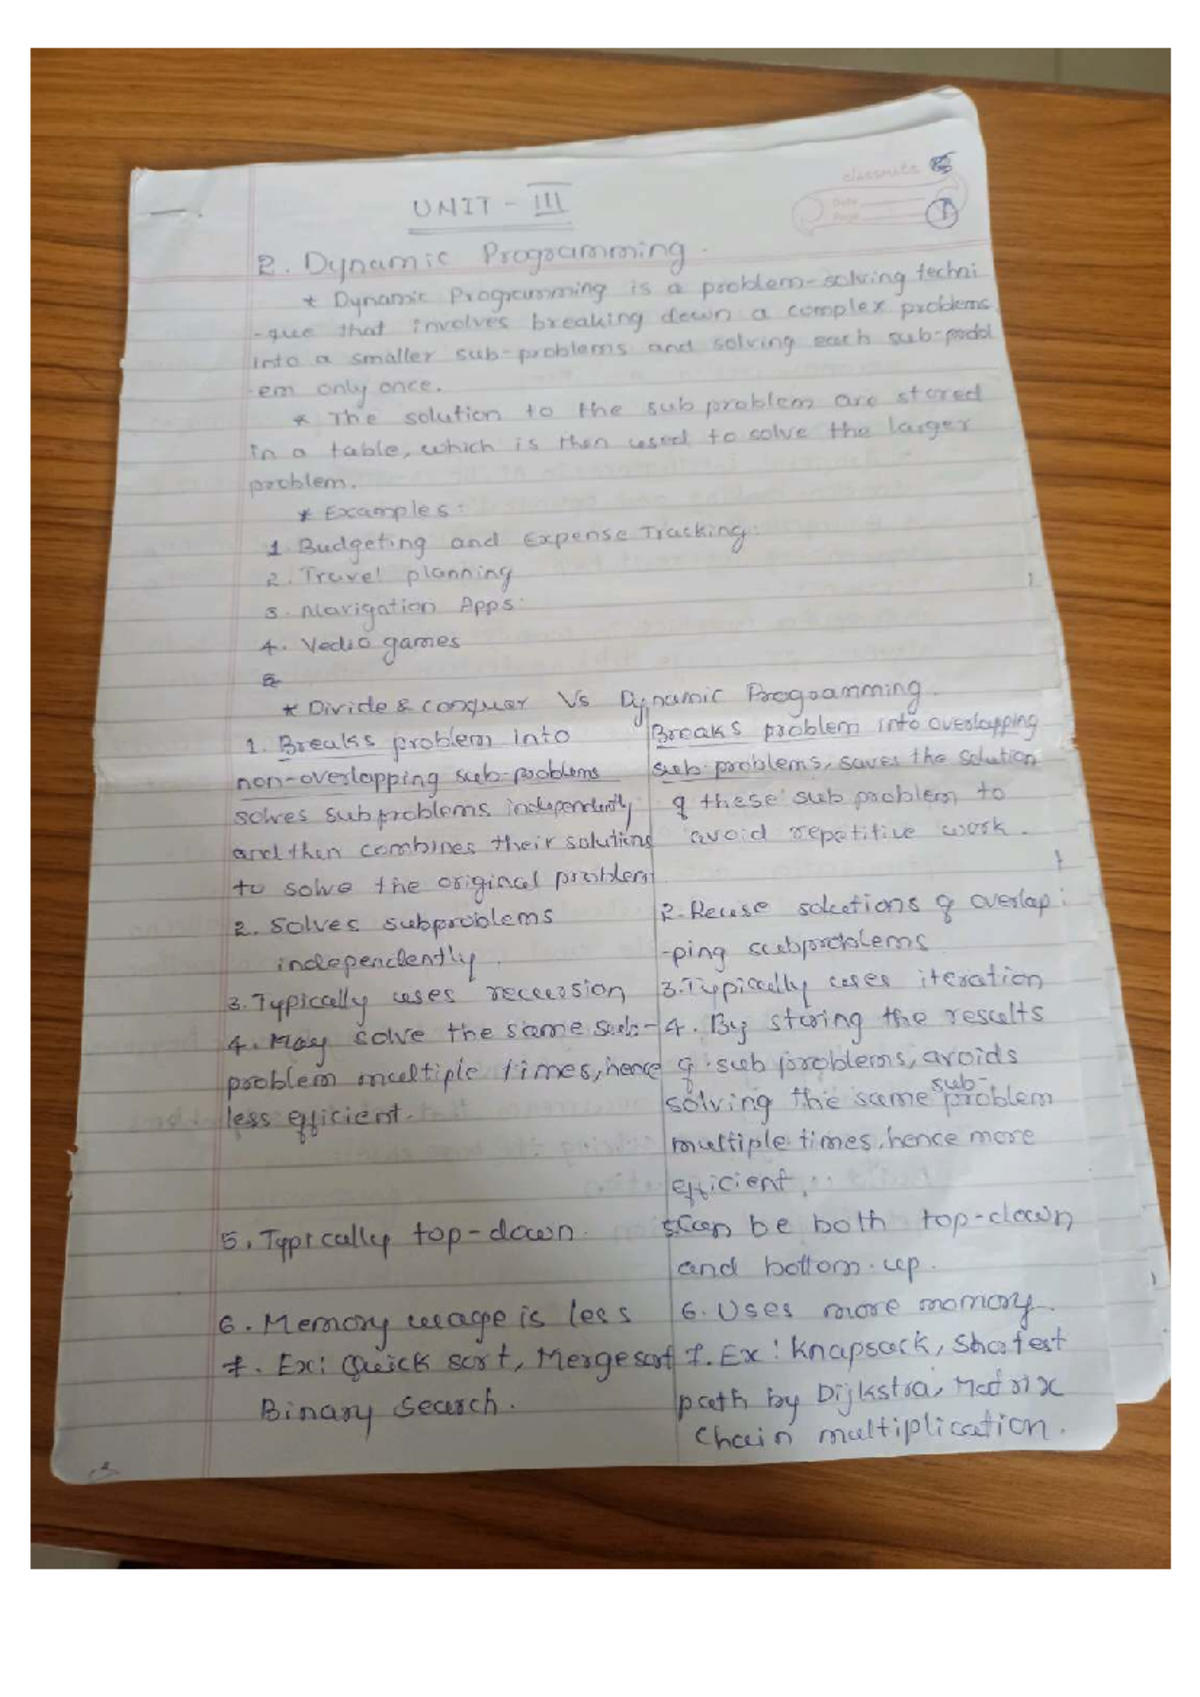 classmate
Date
Page
1
UNIT - III
2. Dynamic Programming.
* Dynamic Programming is a problem-solving techni
-que that involves breaking down a complex problems
into a smaller sub-problems and solving each sub-probl
em only once.
* The solution to the sub problem are stored
in a table, which is then used to solve the larger
problem.
* Examples:
1. Budgeting and Expense Tracking.
2. Travel planning
3. Navigation Apps.
4. Vedio games
* Divide & conquer Vs Dynamic Programming.
1. Breaks problem into
non-overlapping sub-problems
solves subproblems independently
and then combines their solutions
to solve the original problem
2. Solves subproblems
independently.
3. Typically uses recursion
4. May solve the same sub-
problem multiple times, hence
less efficient.
5. Typically top-down.
6. Memory usage is less
7. Ex: Quick sort, Merge sort
Binary Search.
Breaks problem into overlapping
sub-problems, saves the solution
of these sub problem to
avoid repetitive work.
2. Reuse solutions of overlap
-ping subproblems
3. Typically uses iteration
4. By storing the results
of sub problems, avoids
solving the same sub-problem
multiple times, hence more
efficient.
5. Can be both top-down
and bottom-up.
6. Uses more momory.
7. Ex: Knapsack, Shortest
path by Dijkstra, Matrix
Chain multiplication.